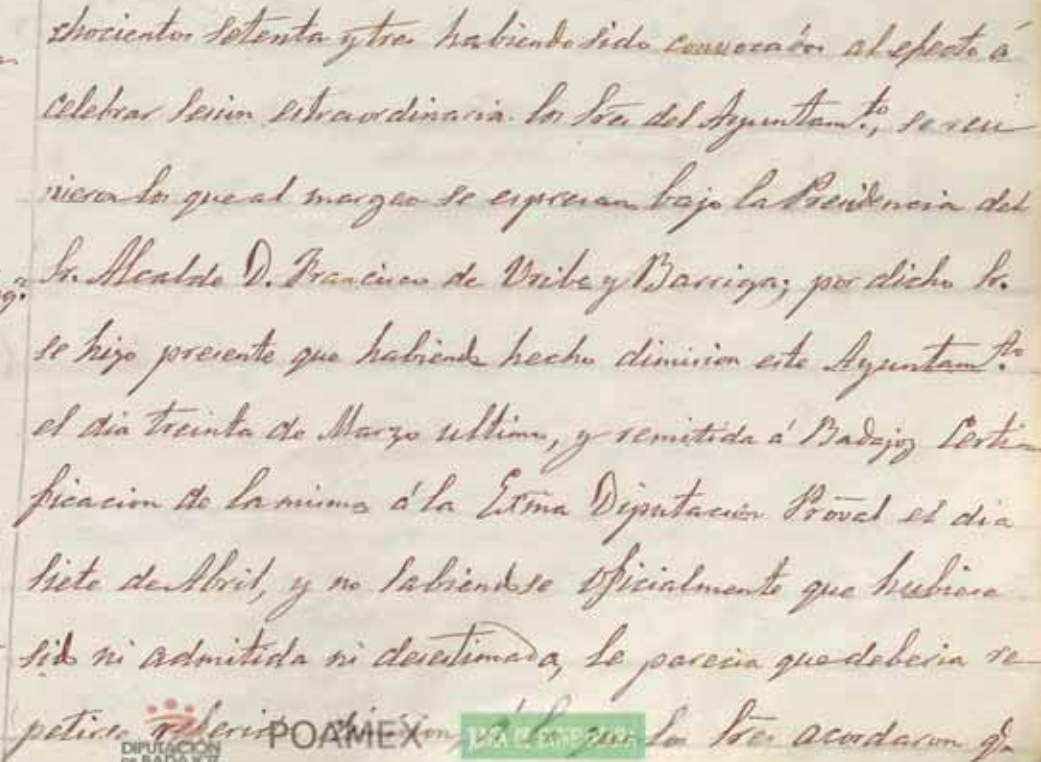 chocientos setenta y tres habiendo sido convocados al efecto á
celebrar sesion estraordinaria los Sres del Ayuntam.to, se reu
nieron los que al margen se espresan bajo la Presidencia del
Sr. Alcalde D. Francisco de Uribe y Barriga; por dicho Sr.
se hizo presente que habiendo hecho dimision este Ayuntam.to
el dia treinta de Marzo ultimo, y remitida á Badajoz Certi
ficacion de la misma á la Exma Diputacion Proval el dia
siete de Abril, y no sabiendose oficialmente que hubiere
sido ni admitida ni desestimada, le parecia que deberia re
petirse dimision á lo que los Sres acordaron q.e
DIPUTACIÓN DE BADAJOZ POAMEX